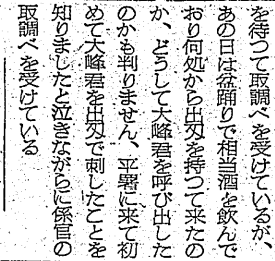 を待つて取調べを受けているが、
あの日は盆踊りで相当酒を飲んで
おり何処から出刃を持つて来たの
か、どうして大峰君を呼び出した
のかも判りません、平署に来て初
めて大峰君を出刃で刺したことを
知りましたと泣きながらに係官の
取調べを受けている